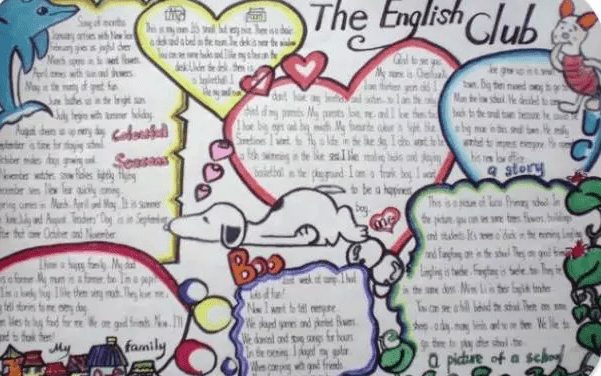 The English Club
Song of months
January arrives with New Year
February gives us joyful cheer
March opens in to sweet flowers
April comes with sun and showers.
May in the many of great fun.
June bathes us in the bright sun.
July begins with summer holiday.
August cheers us up every day.
September is time for staying school.
October makes days growing cool.
November watches snow flakes lightly flying
December sees New Year quickly coming.
Spring comes in March, April and May. It is summer
in June, July and August. Teachers' Day is in September,
after that come October and November.
Colourful
Seasons
My
Room
This is my room. It's small but very nice. There is a chair,
a desk and a bed in the room. The desk is near the window.
You can see some books and
desk. Under the desk, there is
a basketball. I
like my small room
Glad to see you.
My name is
I am thirteen years old. I
don't have any brothers and sisters, so I am the only
child of my parents. My parents love me, and I love them too.
I have big eyes and big mouth. My favourite colour is light blue.
Sometimes I want to fly a kite in the blue sky. I also want to
a little swimming in the blue sea. I like reading books and playing
basketball in the playground. I am a frank boy. I want
to be a happiness
boy.
me
Joe grew up in a small
town. Big then moved away to go to
the law school. He decided to come
back to the small town because he could be
a big man in this small town. He really
wanted to impress everyone. He opened
his new law office.
a story
I have a happy family. My dad
is a farmer. My mum is a farmer, too. I'm a pupil.
I'm a lovely boy. I like them very much. They love me.
tell stories to me every day.
likes to buy food for me. We are good friends. Now, I'll
to thank them!
My family
Boo
Last week at camp I had
lots of fun!
Now I want to tell everyone
We played games and planted flowers.
We danced and sang songs for hours
In the evening, I played my guitar.
When camping with good friends
This is a picture of Primary School. In
the picture, you can see some trees, flowers, buildings
and students. It's seven o'clock in the morning. Lingling
and Fangfang are in the school. They are good friends.
Lingling is twelve. Fangfang is twelve, too. They're
in the same class. Miss Li is their English teacher.
You can see a hill behind the school. There are some
sheep, a dog, many birds and so on there. We like to
go there to play after school, too.
a picture of a school